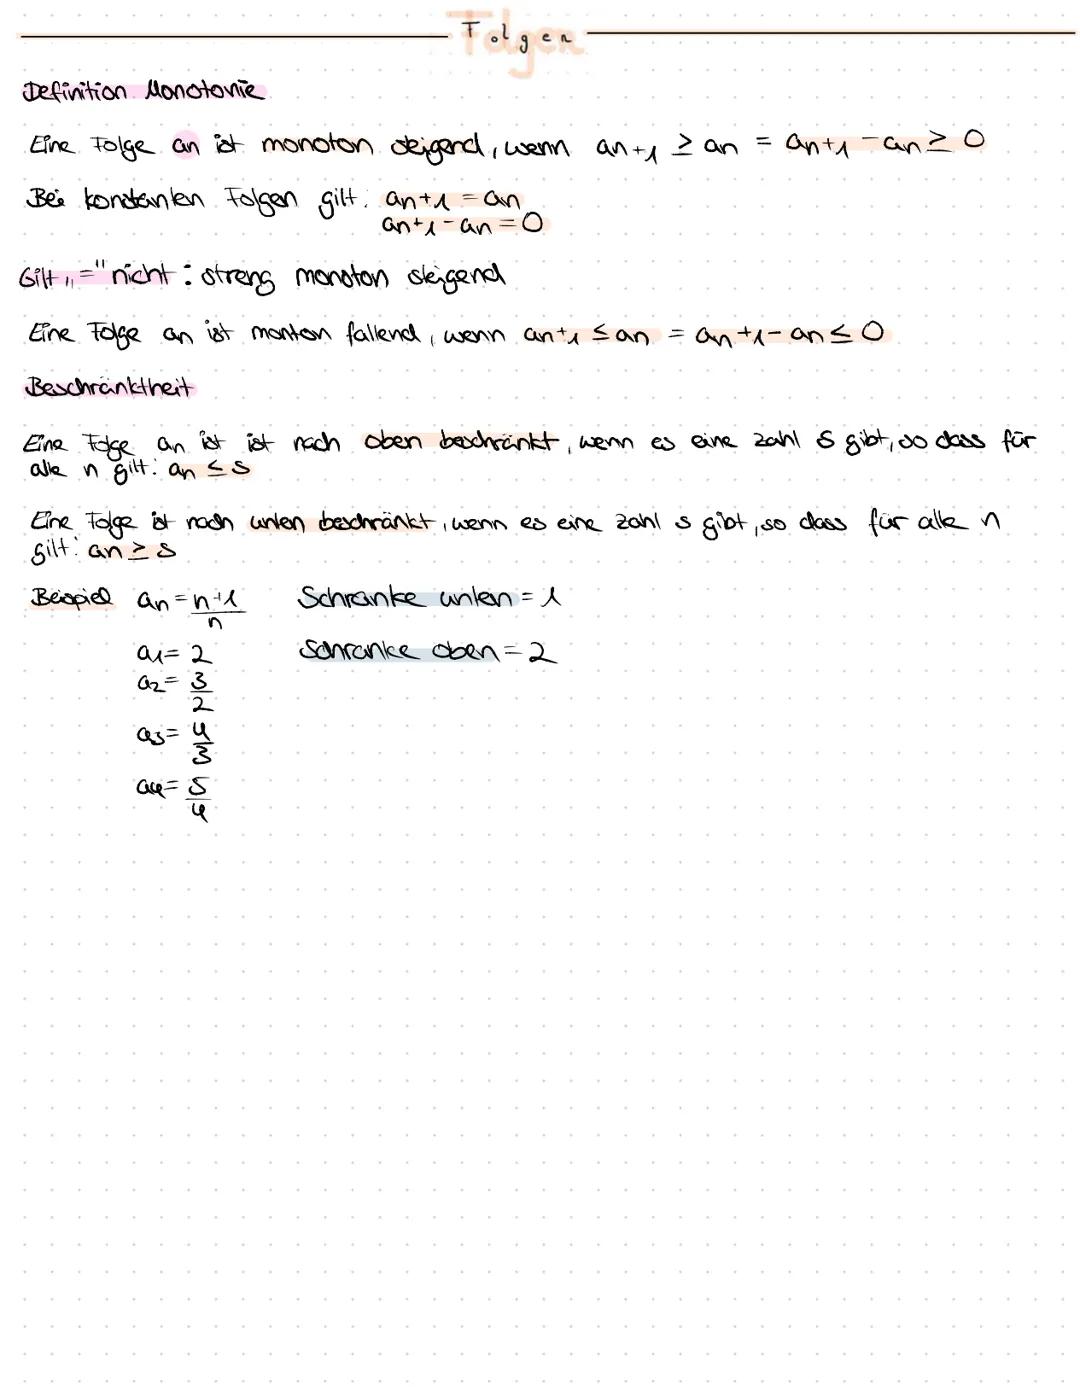 Folgen
Definition Monotonie
Eine Folge an ist monoton steigend, wenn an+1 ≥ an = an+1 - an ≥ 0
Bei konstanten Folgen gilt: an+1 = an
an+1 - an = 0
Gilt „=" nicht: streng monoton steigend
Eine Folge an ist monton fallend, wenn an+1 ≤ an = an+1 - an ≤ 0
Beschränktheit
Eine Folge an ist ist nach oben beschränkt, wenn es eine Zahl S gibt, so dass für
alle n gilt: an ≤ S
Eine Folge ist nach unten beschränkt, wenn es eine Zahl s gibt, so dass für alle n
gilt: an ≥ s
Beispiel an = n+1/n Schranke unten = 1
a1 = 2 Schranke oben = 2
a2 = 3/2
a3 = 4/3
a4 = 5/4